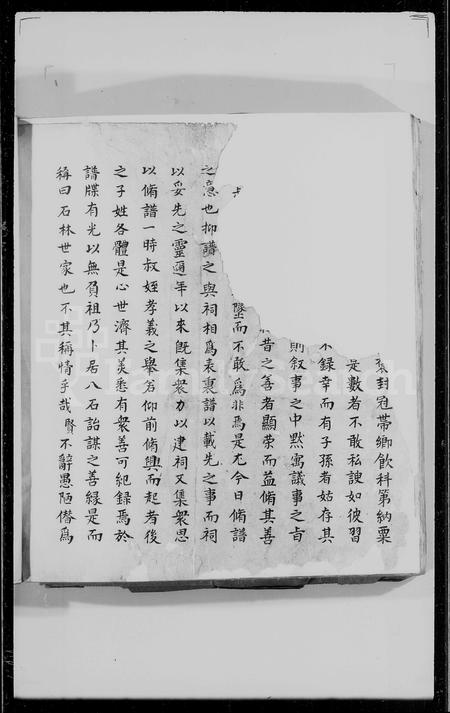 封冠帶鄉飲科第納粟
是數者不敢私諛如彼習
不錄幸而有子孫者姑存其
則叙事之中默寓議事之旨
昔之善者顯荣而益脩其善
墜而不敢為非焉是尤今日脩譜
之意也抑譜之與祠相為表裏譜以載先之事而祠
以妥先之靈邇年以來旣集衆力以建祠又集衆思
以脩譜一時叔姪孝義之舉若仰前脩興而起者後
之子姓各體是心世濟其美悉有衆善可紀録焉於
譜牒有光以無負祖乃卜居八石詒謀之善緑是而
稱曰石林世家也不其稱情乎哉賢不辭愚陋僭為